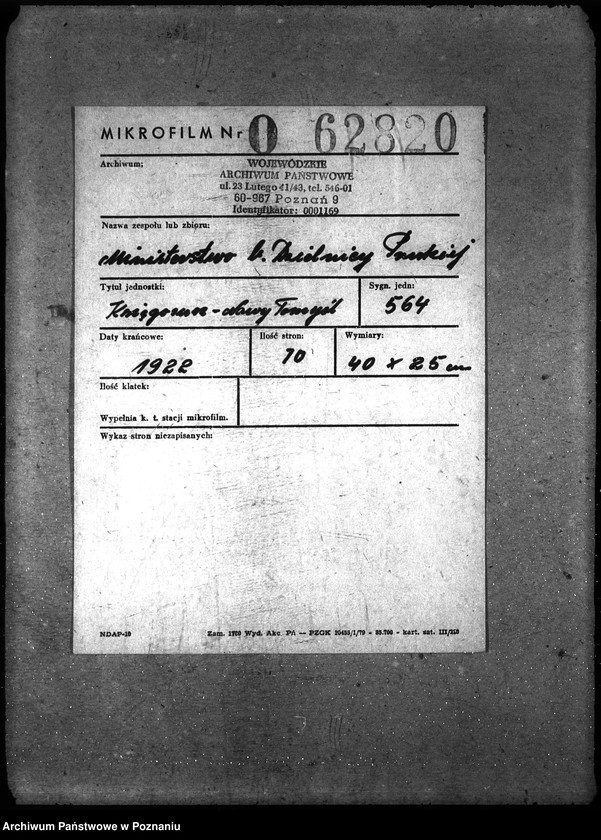 MIKROFILM Nr O 62820
Archiwum:
WOJEWÓDZKIE
ARCHIWUM PAŃSTWOWE
ul. 23 Lutego 41/43, tel. 546-01
60-967 Poznań 9
Identyfikator: 0001169
Nazwa zespołu lub zbioru:
Ministerstwo b. Dzielnicy Pruskiej
Tytuł jednostki:
Sygn. jedn:
Księgozn - Nowy Tomyśl
564
Daty krańcowe:
Ilość stron:
Wymiary:
1922
10
40 x 25 cm
Ilość klatek:
Wypełnia k. t. stacji mikrofilm.
Wykaz stron niezapisanych:
NDAP-10
Zam. 1769 Wyd. Akc Pń — PZGK - kart. sat. III/210
Archiwum Państwowe w Poznaniu